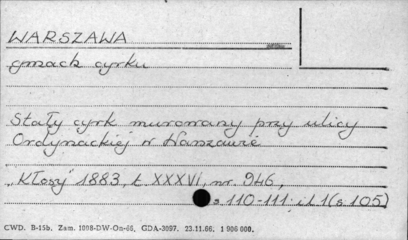 WARSZAWA
gmach cyrku
Stały cyrk murowany przy ulicy
Ordynackiej w Warszawie
„Kłosy" 1883, t. XXXVI, nr. 946,
s. 110-111: il. 1 (s. 105)
CWD. B-15b. Zam. 1098-DW-On-66. GDA-3097. 23.11.66. 1 906 000.